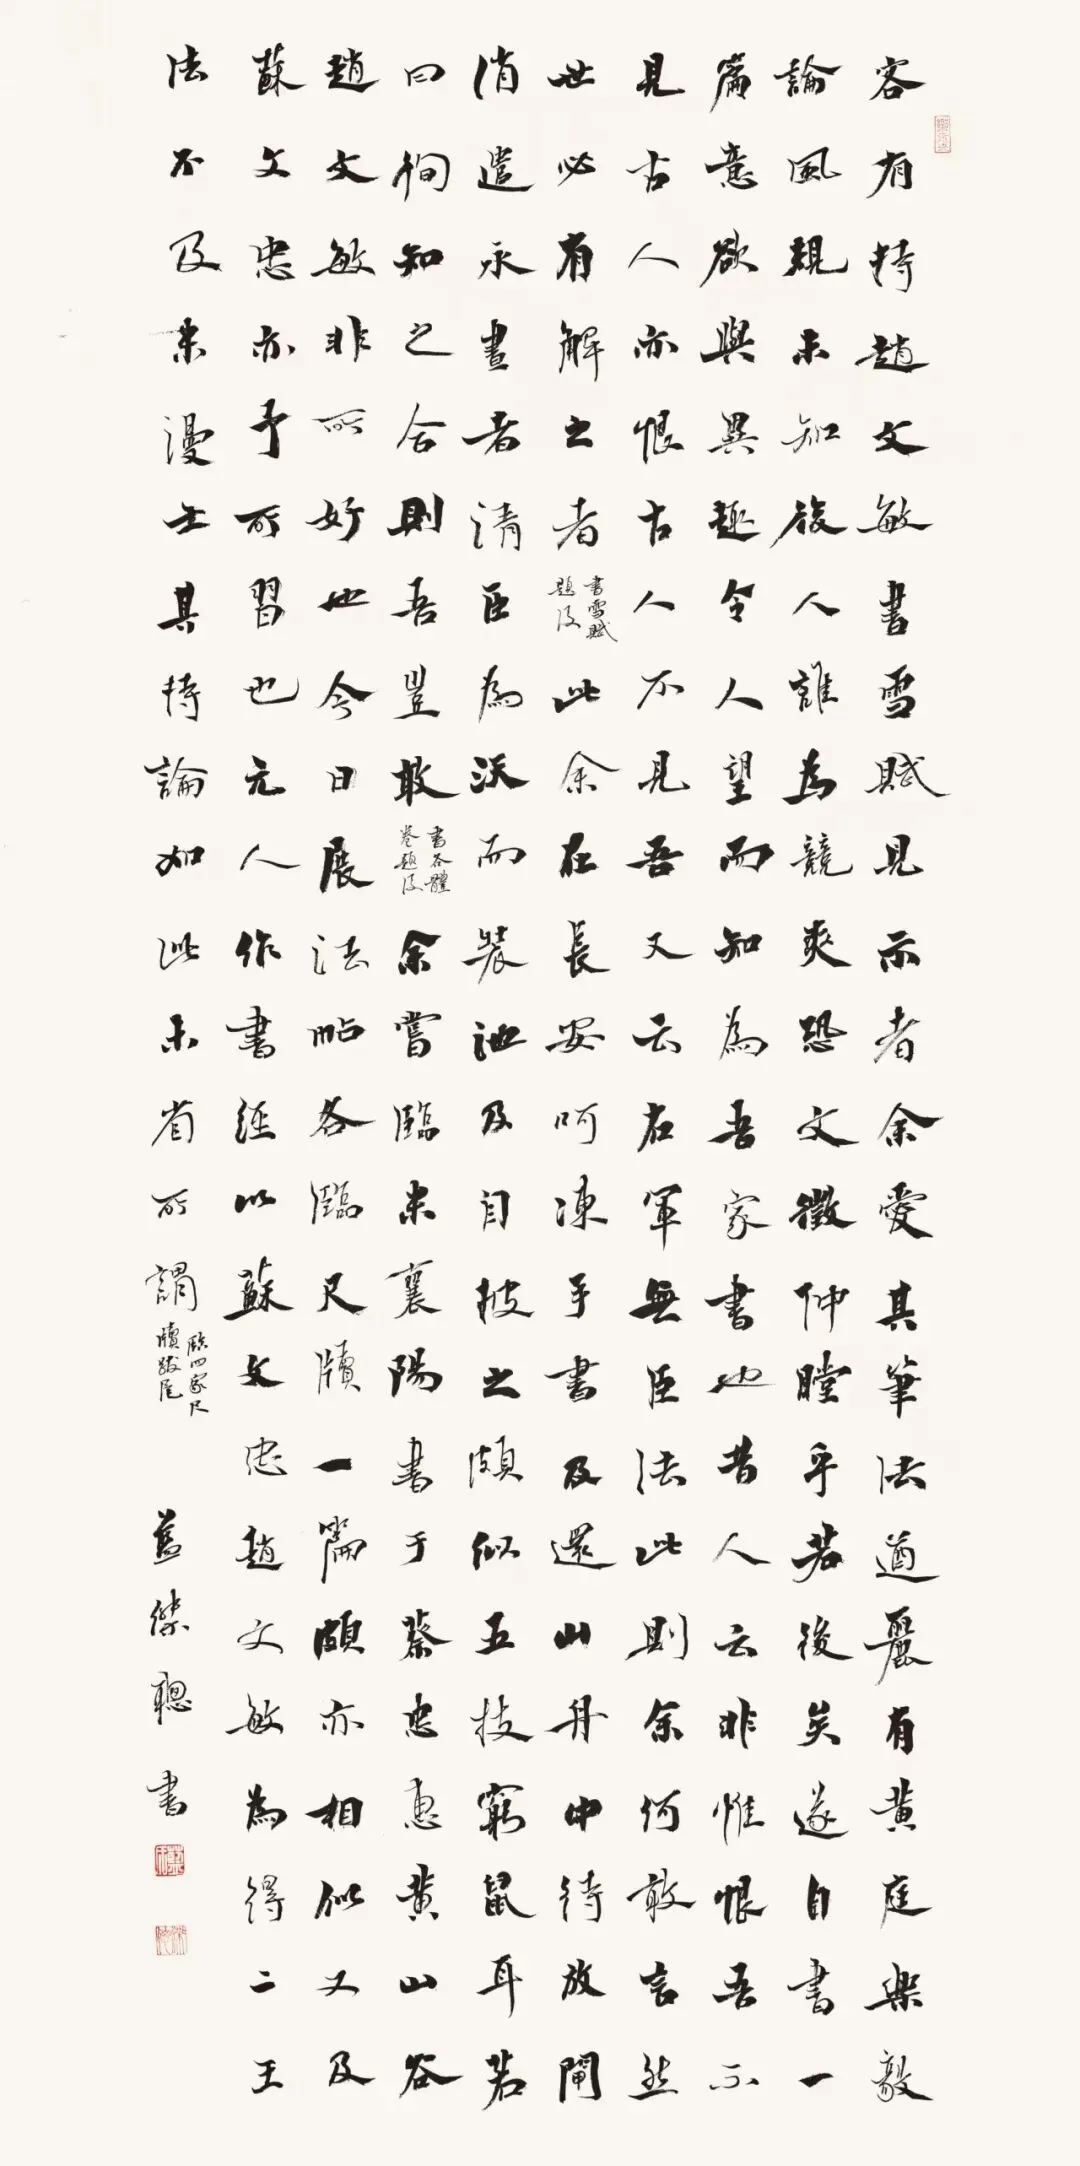 客有持趙文敏書雪賦見示者余愛其筆法遒麗有黃庭樂毅
論風規未知後人誰為競爽恐文徵仲瞠乎若後矣遂自書一
篇意欲與異趣令人望而知為吾家書也昔人云非惟恨吾不
見古人亦恨古人不見吾又云右軍無臣法此則余何敢言然
世必有解之者書雪賦題後此余在長安呵凍手書及還山舟中待放閘
消遣永晝者清臣為沃而裝池及自披之頗似五技窮鼠耳若
曰徇知之合則吾豈敢書各體卷題後余嘗臨米襄陽書于蔡忠惠黃山谷
趙文敏非所好也今日展法帖各臨尺牘一篇頗亦相似又及
蘇文忠亦予所習也元人作書經以蘇文忠趙文敏為得二王
法不及米漫士其持論如此未省所謂臨四家尺牘跋尾 藍傑聰書